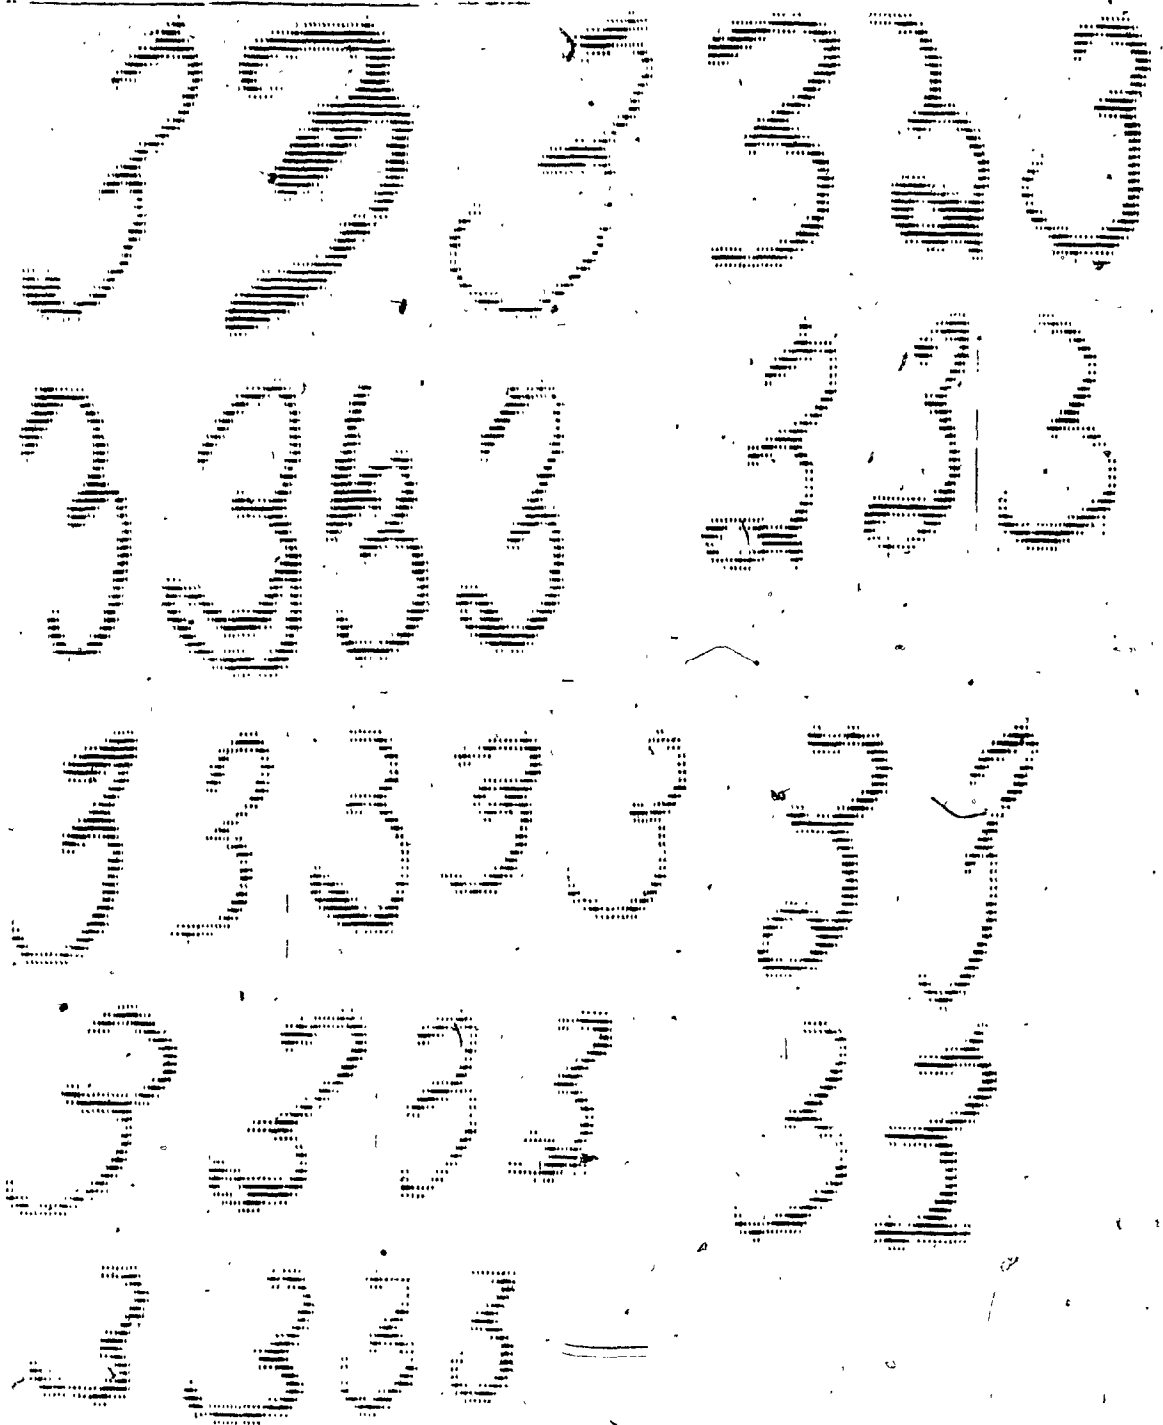 3 3 3 3 3 3
3 3 3 3 3 3 3
3 3 3 3 3 3 3
3 3 3 3 3 3
3 3 3 3